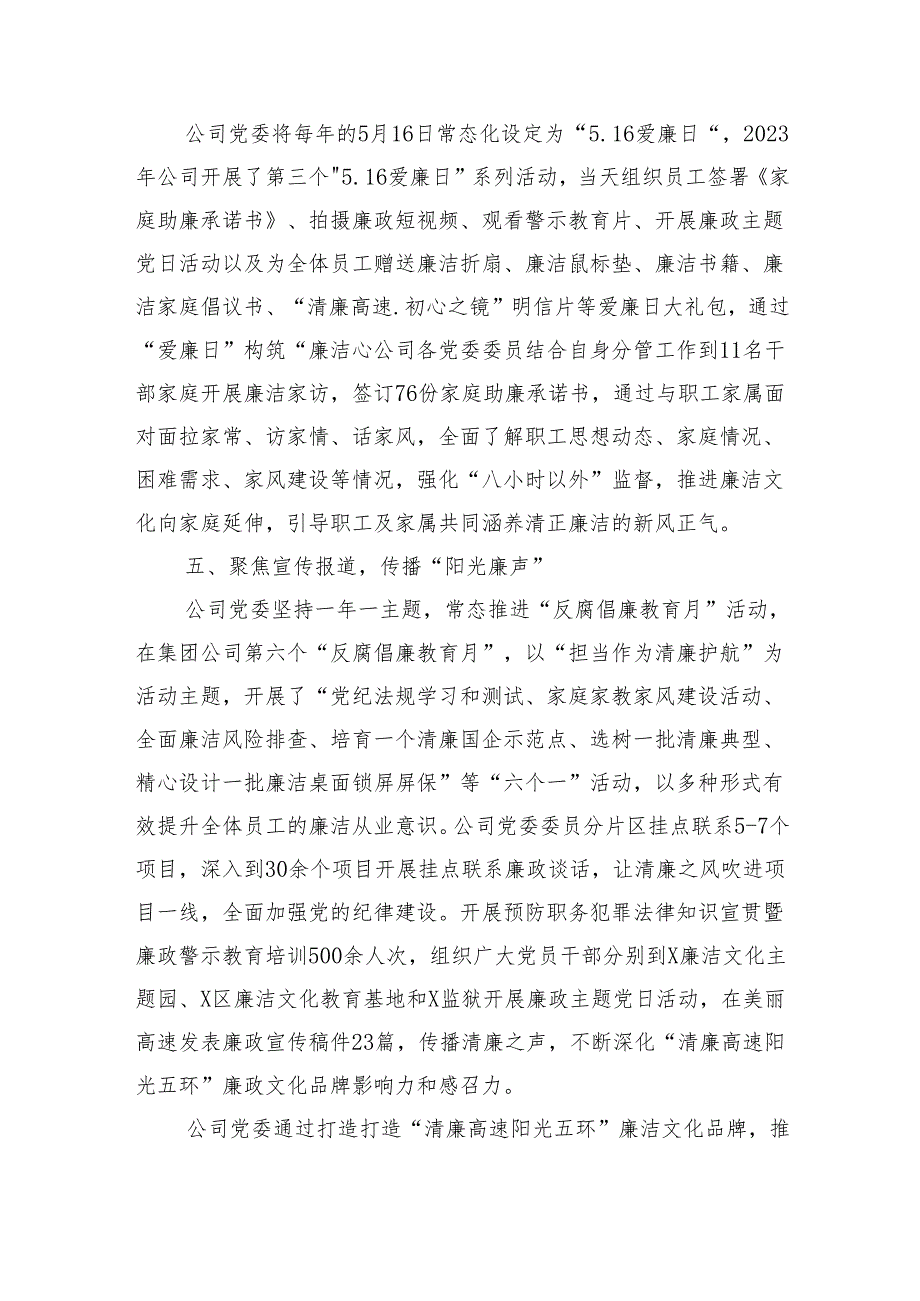 公司党委将每年的5月16日常态化设定为“5.16爱廉日“，2023
年公司开展了第三个"5.16爱廉日”系列活动，当天组织员工签署《家
庭助廉承诺书》、拍摄廉政短视频、观看警示教育片、开展廉政主题
党日活动以及为全体员工赠送廉洁折扇、廉洁鼠标垫、廉洁书籍、廉
洁家庭倡议书、“清廉高速.初心之镜”明信片等爱廉日大礼包，通过
“爱廉日”构筑“廉洁心公司各党委委员结合自身分管工作到11名干
部家庭开展廉洁家访，签订76份家庭助廉承诺书，通过与职工家属面
对面拉家常、访家情、话家风，全面了解职工思想动态、家庭情况、
困难需求、家风建设等情况，强化“八小时以外”监督，推进廉洁文
化向家庭延伸，引导职工及家属共同涵养清正廉洁的新风正气。
五、聚焦宣传报道，传播“阳光廉声”
公司党委坚持一年一主题，常态推进“反腐倡廉教育月”活动，
在集团公司第六个“反腐倡廉教育月”，以“担当作为清廉护航”为
活动主题，开展了“党纪法规学习和测试、家庭家教家风建设活动、
全面廉洁风险排查、培育一个清廉国企示范点、选树一批清廉典型、
精心设计一批廉洁桌面锁屏屏保”等“六个一”活动，以多种形式有
效提升全体员工的廉洁从业意识。公司党委委员分片区挂点联系5-7个
项目，深入到30余个项目开展挂点联系廉政谈话，让清廉之风吹进项
目一线，全面加强党的纪律建设。开展预防职务犯罪法律知识宣贯暨
廉政警示教育培训500余人次，组织广大党员干部分别到X廉洁文化主
题园、X区廉洁文化教育基地和X监狱开展廉政主题党日活动，在美丽
高速发表廉政宣传稿件23篇，传播清廉之声，不断深化“清廉高速阳
光五环”廉政文化品牌影响力和感召力。
公司党委通过打造打造“清廉高速阳光五环”廉洁文化品牌，推